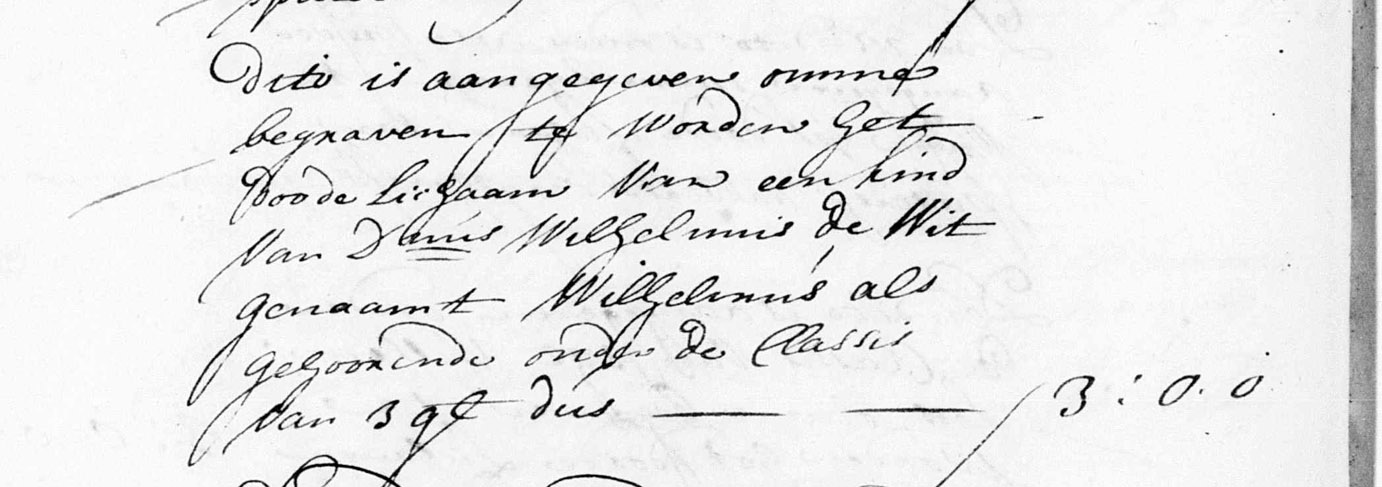 Dito is aangegeven omme
begraven te worden het
doode lichaam van een kind
van D:mus Wilhelmus de Wit
genaamt Wilhelmus als
gehoorende onder de Classis
van 3 gl dus — — 3:0.0